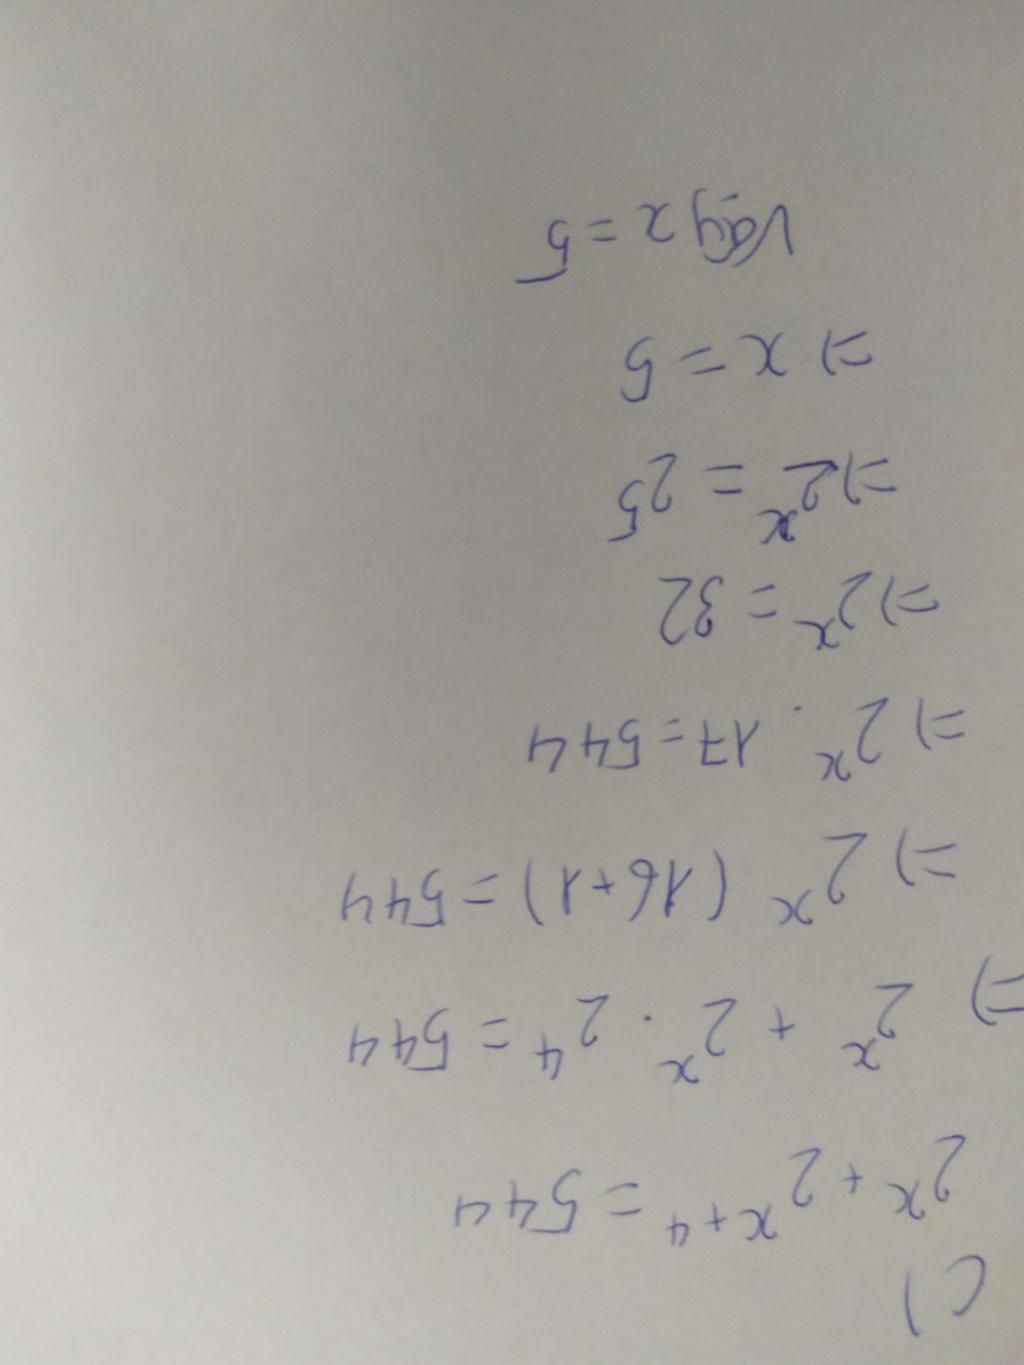 c)
2^x + 2^{x+4} = 544
=) 2^x + 2^x . 2^4 = 544
=) 2^x (16+1) = 544
=) 2^x . 17 = 544
=) 2^x = 32
=) 2^x = 2^5
=) x = 5
Vậy x = 5